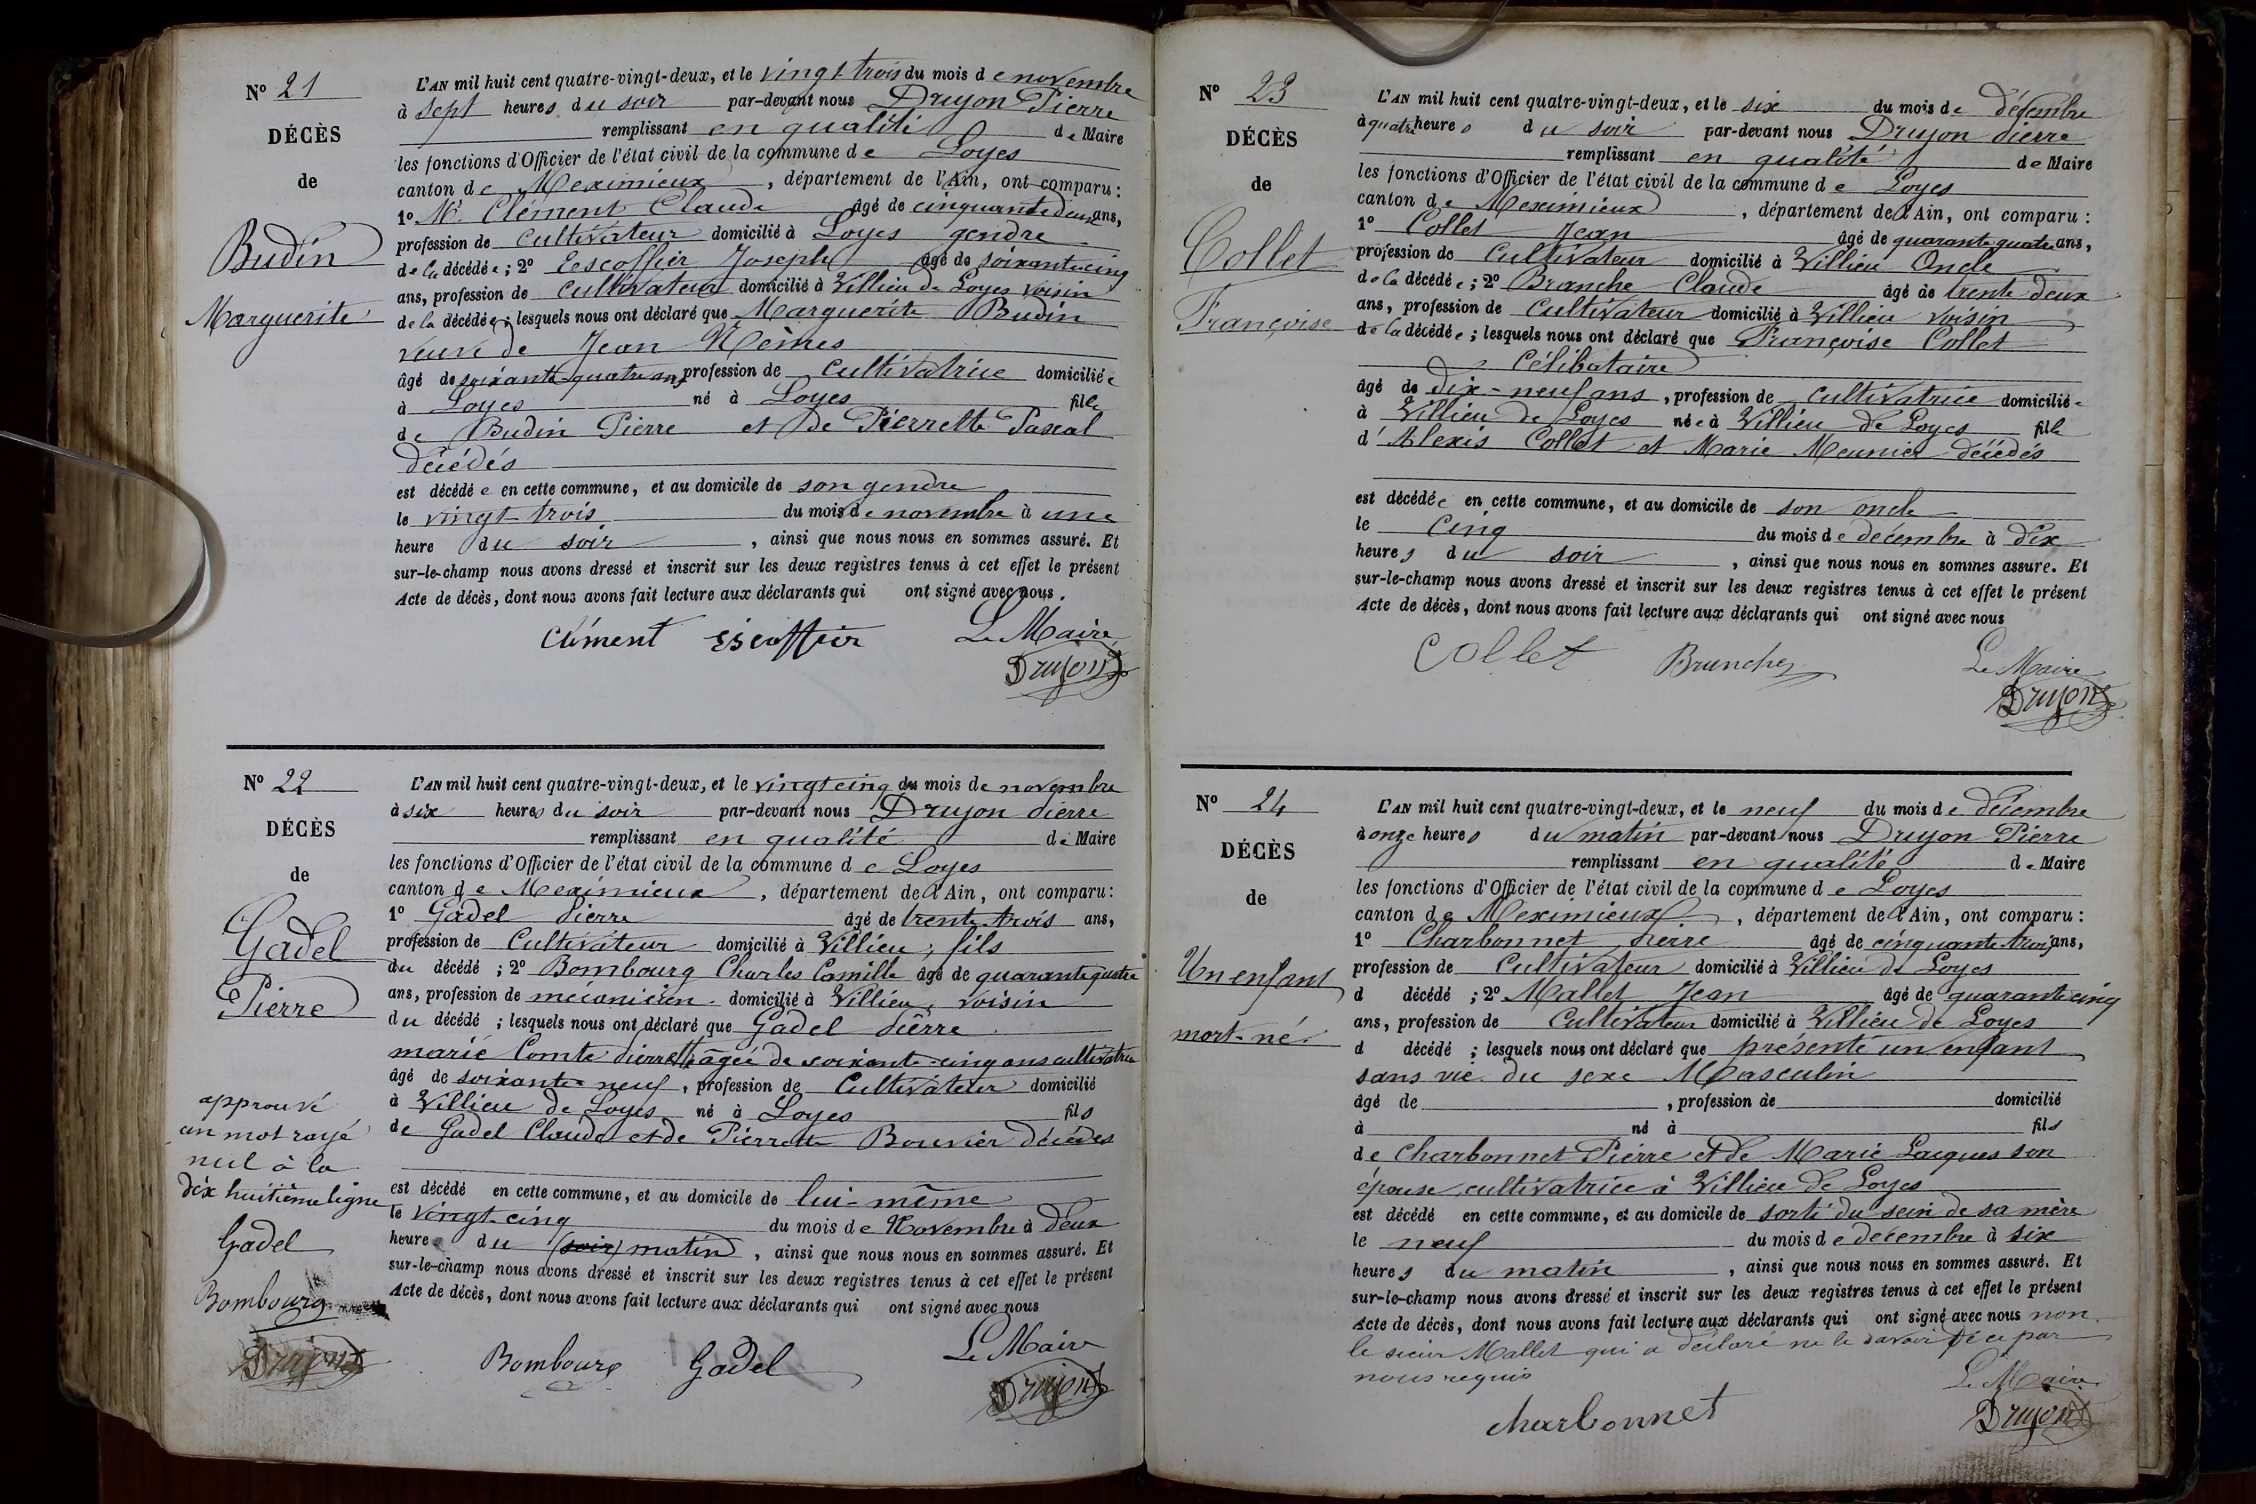 N° 21
DÉCÈS
de
Budin
Marguerite
L'AN mil huit cent quatre-vingt-deux, et le vingt trois du mois de novembre
à sept heures du soir par-devant nous Druyon Pierre
remplissant en qualité de Maire
les fonctions d'Officier de l'état civil de la commune de Loyes
canton de Meximieux, département de l'Ain, ont comparu :
1° Mr Clément Claude âgé de cinquante deux ans,
profession de cultivateur domicilié à Loyes gendre
de la décédée ; 2° Escoffier Joseph âgé de soixante cinq
ans, profession de cultivateur domicilié à Villieu de Loyes voisin
de la décédée ; lesquels nous ont déclaré que Marguerite Budin
veuve de Jean
âgé de soixante quatre ans profession de cultivatrice domiciliée
à Loyes né à Loyes fille
de Budin Pierre et de Pierrette Pascal
décédés
est décédée en cette commune, et au domicile de son gendre
le vingt trois du mois de novembre à une
heure du soir, ainsi que nous nous en sommes assuré. Et
sur-le-champ nous avons dressé et inscrit sur les deux registres tenus à cet effet le présent
Acte de décès, dont nous avons fait lecture aux déclarants qui ont signé avec nous.
Clément Escoffier Le Maire
Druyon
N° 22
DÉCÈS
de
Gadel
Pierre
L'AN mil huit cent quatre-vingt-deux, et le vingt cinq du mois de novembre
à six heures du soir par-devant nous Druyon Pierre
remplissant en qualité de Maire
les fonctions d'Officier de l'état civil de la commune de Loyes
canton de Meximieux, département de l'Ain, ont comparu :
1° Gadel Pierre âgé de trente trois ans,
profession de Cultivateur domicilié à Villieu, fils
du décédé ; 2° Bombourg Charles Camille âgé de quarante quatre
ans, profession de mécanicien domicilié à Villieu, voisin
du décédé ; lesquels nous ont déclaré que Gadel Pierre
marié Comte Pierrette âgée de soixante-cinq ans cultivatrice
âgé de soixante neuf, profession de Cultivateur domicilié
à Villieu de Loyes né à Loyes fils
de Gadel Claude et de Pierrette Bouvier décédés
est décédé en cette commune, et au domicile de lui-même
le vingt-cinq du mois de Novembre à deux
heures du (soir) matin, ainsi que nous nous en sommes assuré. Et
sur-le-champ nous avons dressé et inscrit sur les deux registres tenus à cet effet le présent
Acte de décès, dont nous avons fait lecture aux déclarants qui ont signé avec nous
approuvé
un mot rayé
nul à la
dix huitième ligne
Gadel
Bombourg
Druyon
Bombourg Gadel Le Maire
Druyon
N° 23
DÉCÈS
de
Collet
Françoise
L'AN mil huit cent quatre-vingt-deux, et le six du mois de décembre
à quatre heures du soir par-devant nous Druyon Pierre
remplissant en qualité de Maire
les fonctions d'Officier de l'état civil de la commune de Loyes
canton de Meximieux, département de l'Ain, ont comparu :
1° Collet Jean âgé de quarante quatre ans,
profession de Cultivateur domicilié à Villieu Oncle
de la décédée ; 2° Branche Claude âgé de trente deux
ans, profession de Cultivateur domicilié à Villieu voisin
de la décédée ; lesquels nous ont déclaré que Françoise Collet
Célibataire
âgé de dix-neuf ans, profession de cultivatrice domiciliée
à Villieu de Loyes née à Villieu de Loyes fille
d'Alexis Collet et Marie Meunier décédés
est décédée en cette commune, et au domicile de son oncle
le Cinq du mois de décembre à dix
heures du soir, ainsi que nous nous en sommes assuré. Et
sur-le-champ nous avons dressé et inscrit sur les deux registres tenus à cet effet le présent
Acte de décès, dont nous avons fait lecture aux déclarants qui ont signé avec nous
Collet Le Maire
Druyon
N° 24
DÉCÈS
de
Un enfant
mort-né
L'AN mil huit cent quatre-vingt-deux, et le neuf du mois de décembre
à onze heures du matin par-devant nous Druyon Pierre
remplissant en qualité de Maire
les fonctions d'Officier de l'état civil de la commune de Loyes
canton de Meximieux, département de l'Ain, ont comparu :
1° Charbonnet Pierre âgé de cinquante trois ans,
profession de Cultivateur domicilié à Villieu de Loyes
d décédé ; 2° Mallet Jean âgé de quarante cinq
ans, profession de Cultivateur domicilié à Villieu de Loyes
d décédé ; lesquels nous ont déclaré que présenté un enfant
sans vie du sexe Masculin
âgé de , profession de domicilié
à né à fils
de Charbonnet Pierre et de Marie Jacques son
épouse, cultivatrice à Villieu de Loyes
est décédé en cette commune, et au domicile de sorti du sein de sa mère
le neuf du mois de décembre à six
heures du matin, ainsi que nous nous en sommes assuré. Et
sur-le-champ nous avons dressé et inscrit sur les deux registres tenus à cet effet le présent
Acte de décès, dont nous avons fait lecture aux déclarants qui ont signé avec nous non
le sieur Mallet qui a déclaré ne le savoir de ce par
nous requis
Le Maire
charbonnet Druyon